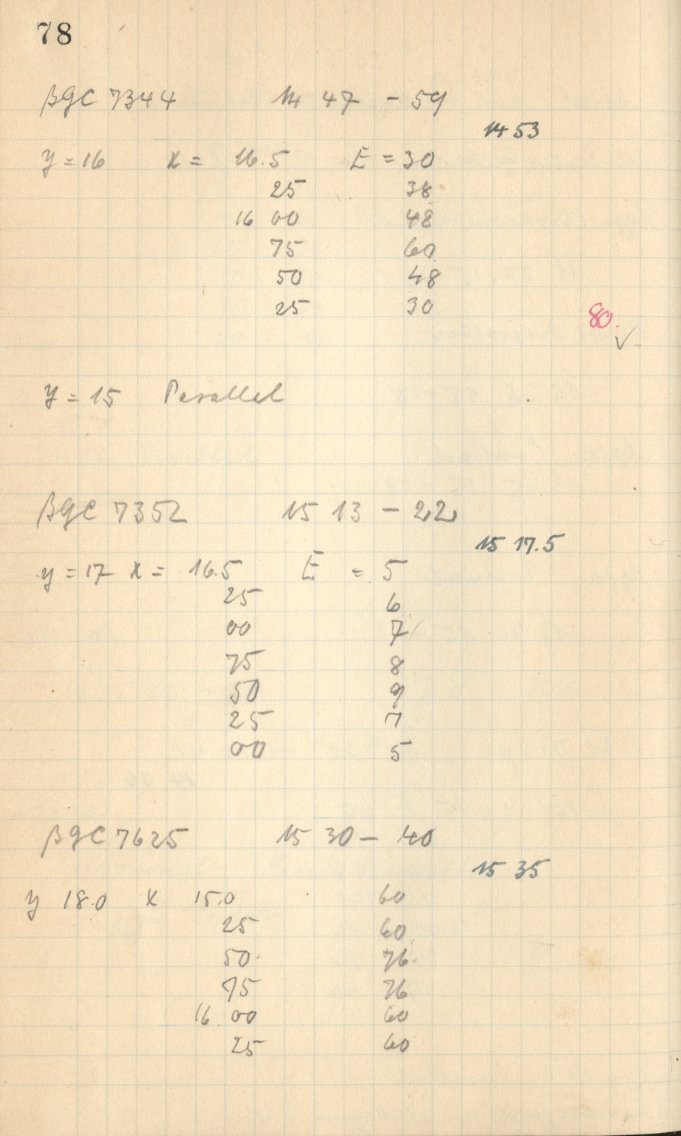 78
βGC 7344 14 47 - 59
14 53
y = 16 x = 16.5 E = 30
25 38
16 00 48
75 60
50 48
25 30
80.
✓
y = 15 Parallel
βGC 7352 15 13 - 22
15 17.5
y = 17 x = 16.5 E = 5
25 6
00 7
75 8
50 9
25 7
00 5
βGC 7625 15 30 - 40
15 35
y 18.0 x 15.0 60
25 60
50. 76.
75 76
16 00 60
25 60